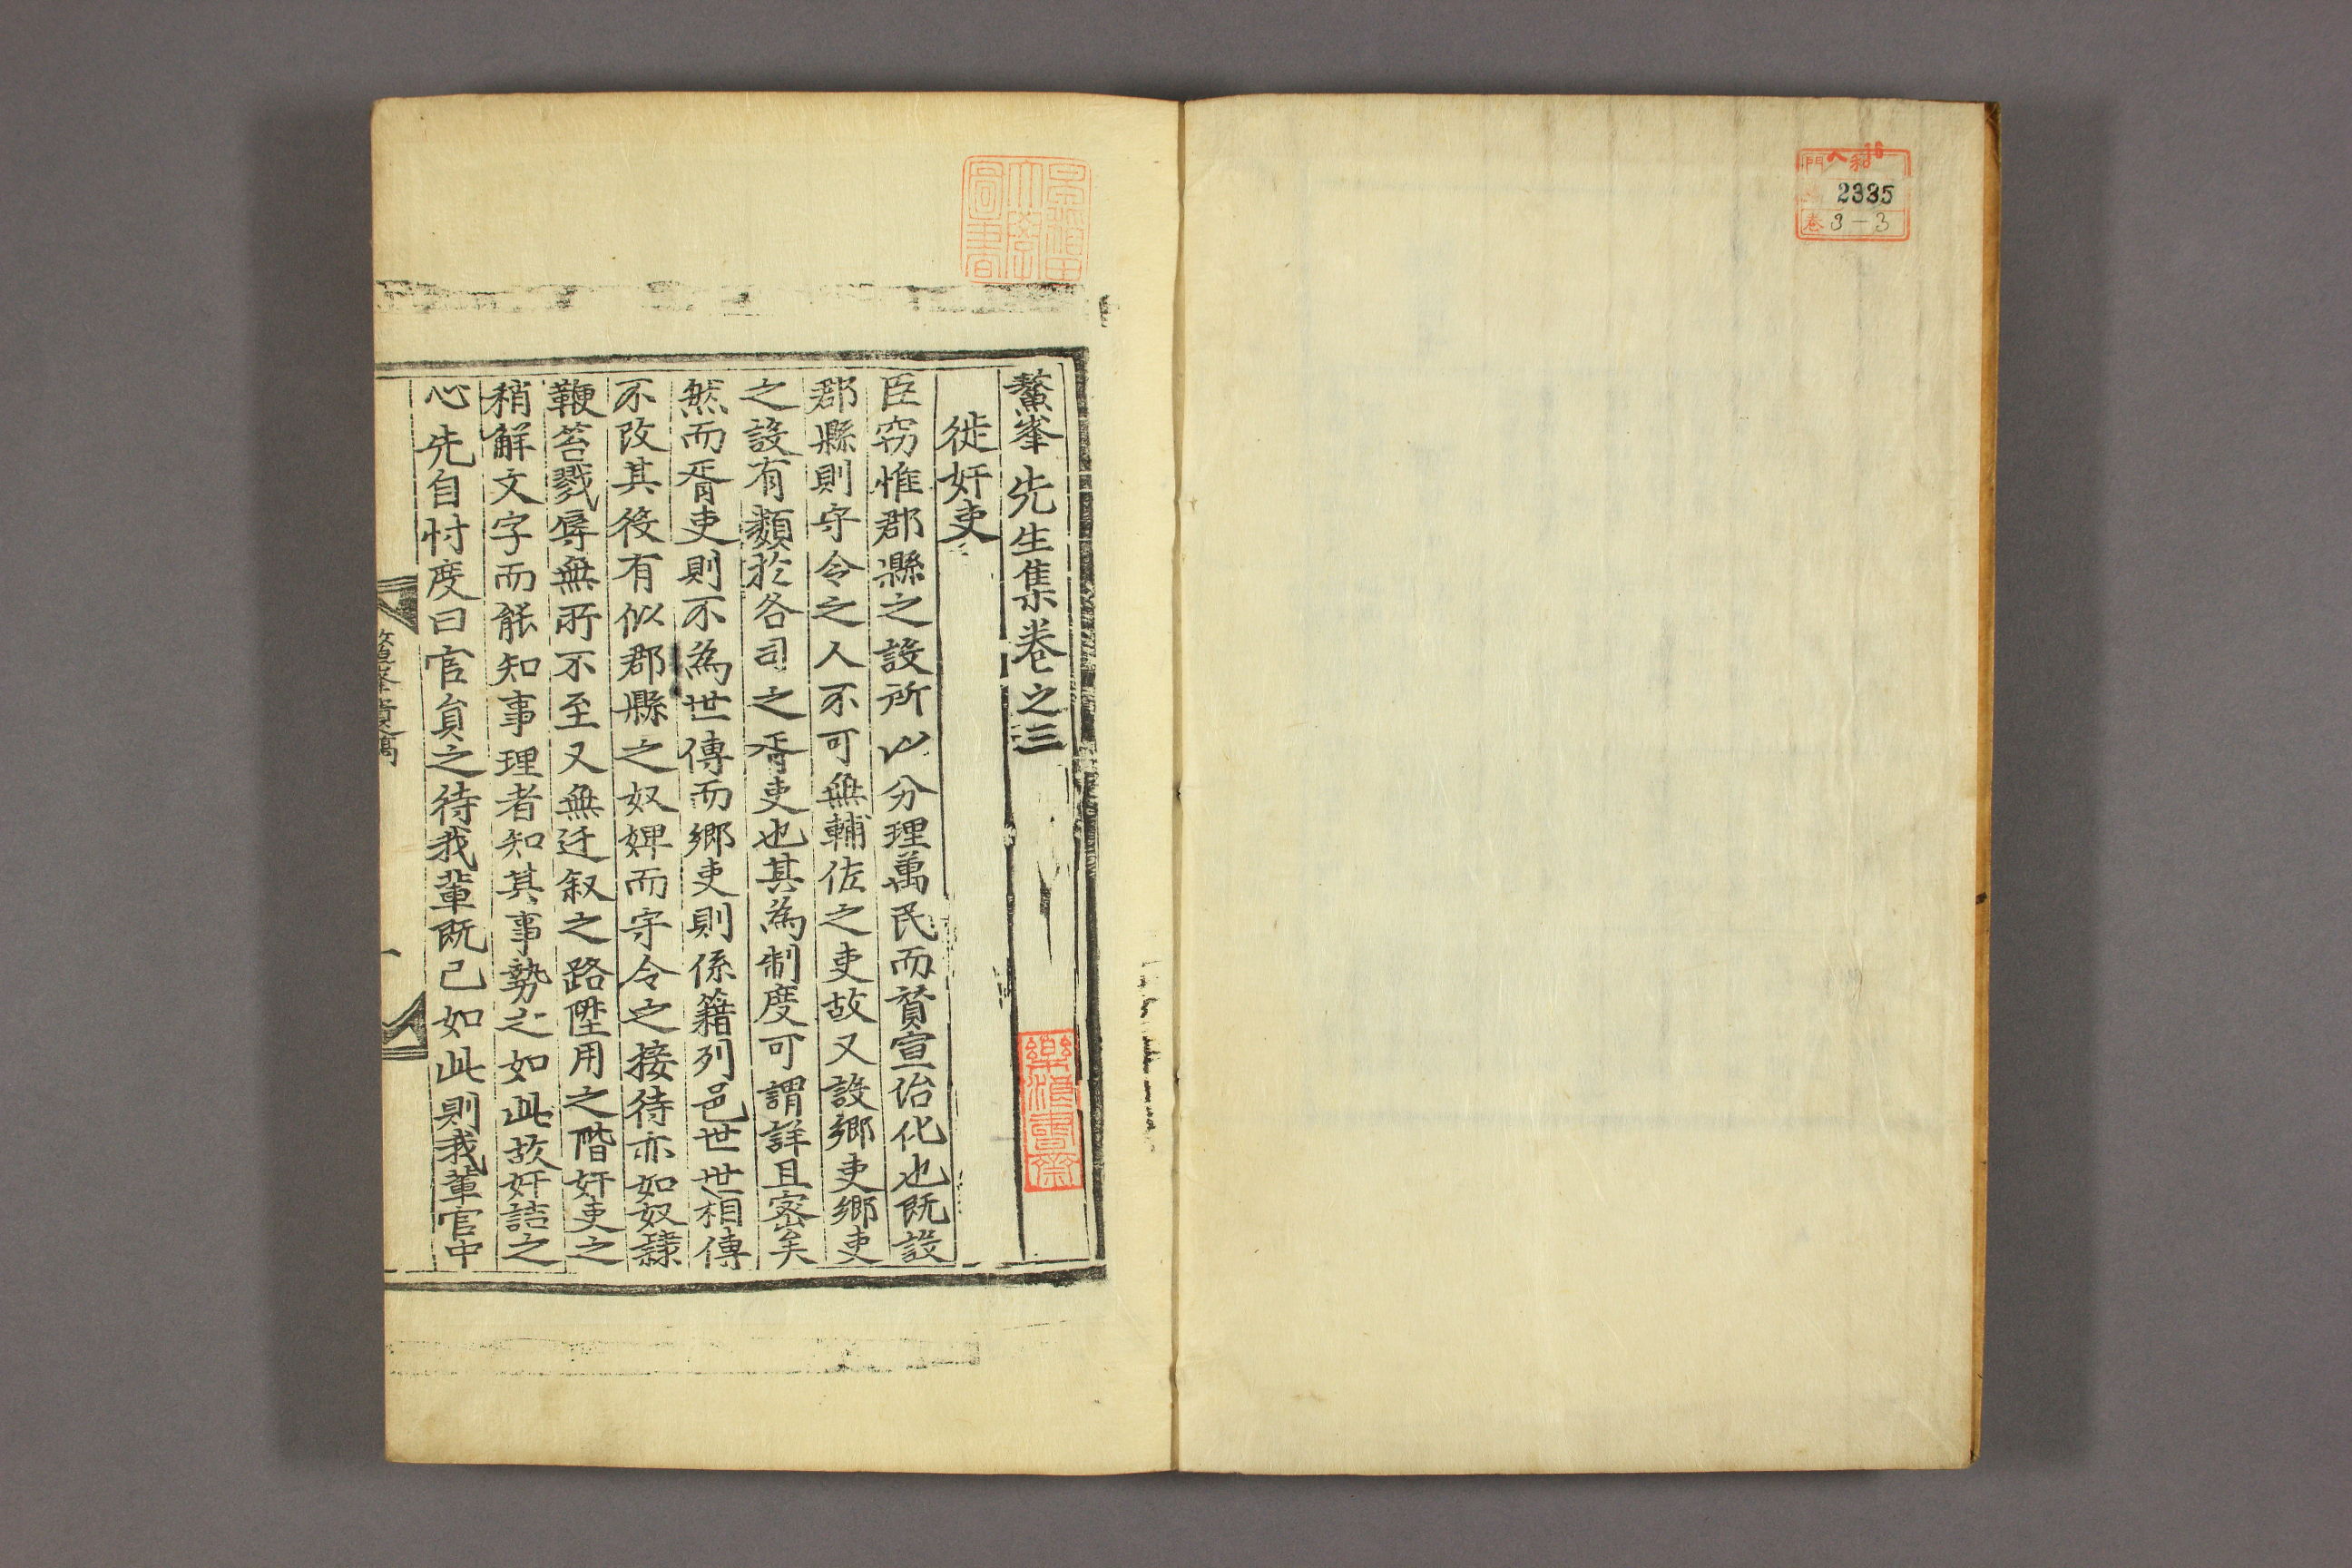 門 和 16
2335
巻 3-3
鰲峯先生集卷之三
徙奸吏
臣窃惟郡縣之設所以分理萬民而資宣治化也既設
郡縣則守令之人不可無輔佐之吏故又設鄉吏鄉吏
之設有類於各司之胥吏也其為制度可謂詳且密矣
然而胥吏則不為世傳而鄉吏則係籍列邑世世相傳
不改其役有似郡縣之奴婢而守令之接待亦如奴隸
鞭笞戮辱無所不至又無迁叙之路陞用之階奸吏之
稍解文字而能知事理者知其事勢之如此故奸詰之
心先自忖度曰官負之待我輩既已如此則我輩官中
鰲峯遺稿
一
樂浪書齋
早稲田大學圖書